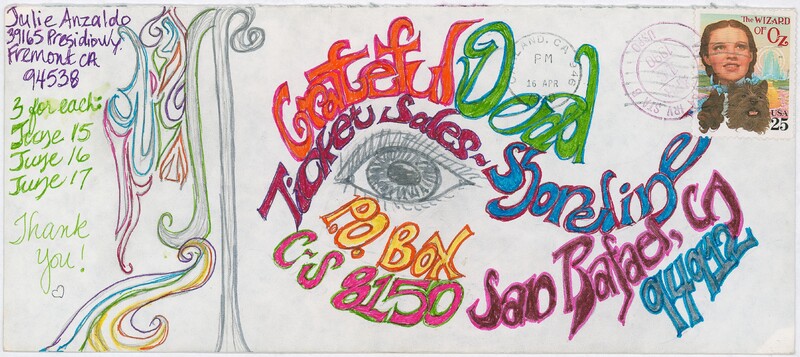 Julie Anzaldo
39165 Presidio Wy.
Fremont CA
94538
3 for each:
June 15
June 16
June 17
Thank
you!
Grateful Dead
Ticket Sales~Shoreline
P.O. BOX
C-S 8150
San Rafael, CA
94912
OAKLAND, CA 946
PM
16 APR
The WIZARD
OF OZ
USA
25